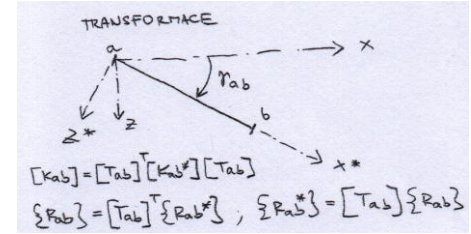 TRANSFORMACE
a
x
γab
b
z*
z
x*
[Kab]=[Tab]ᵀ[Kab*][Tab]
{Rab}=[Tab]ᵀ{Rab*} ; {Rab*}=[Tab]{Rab}